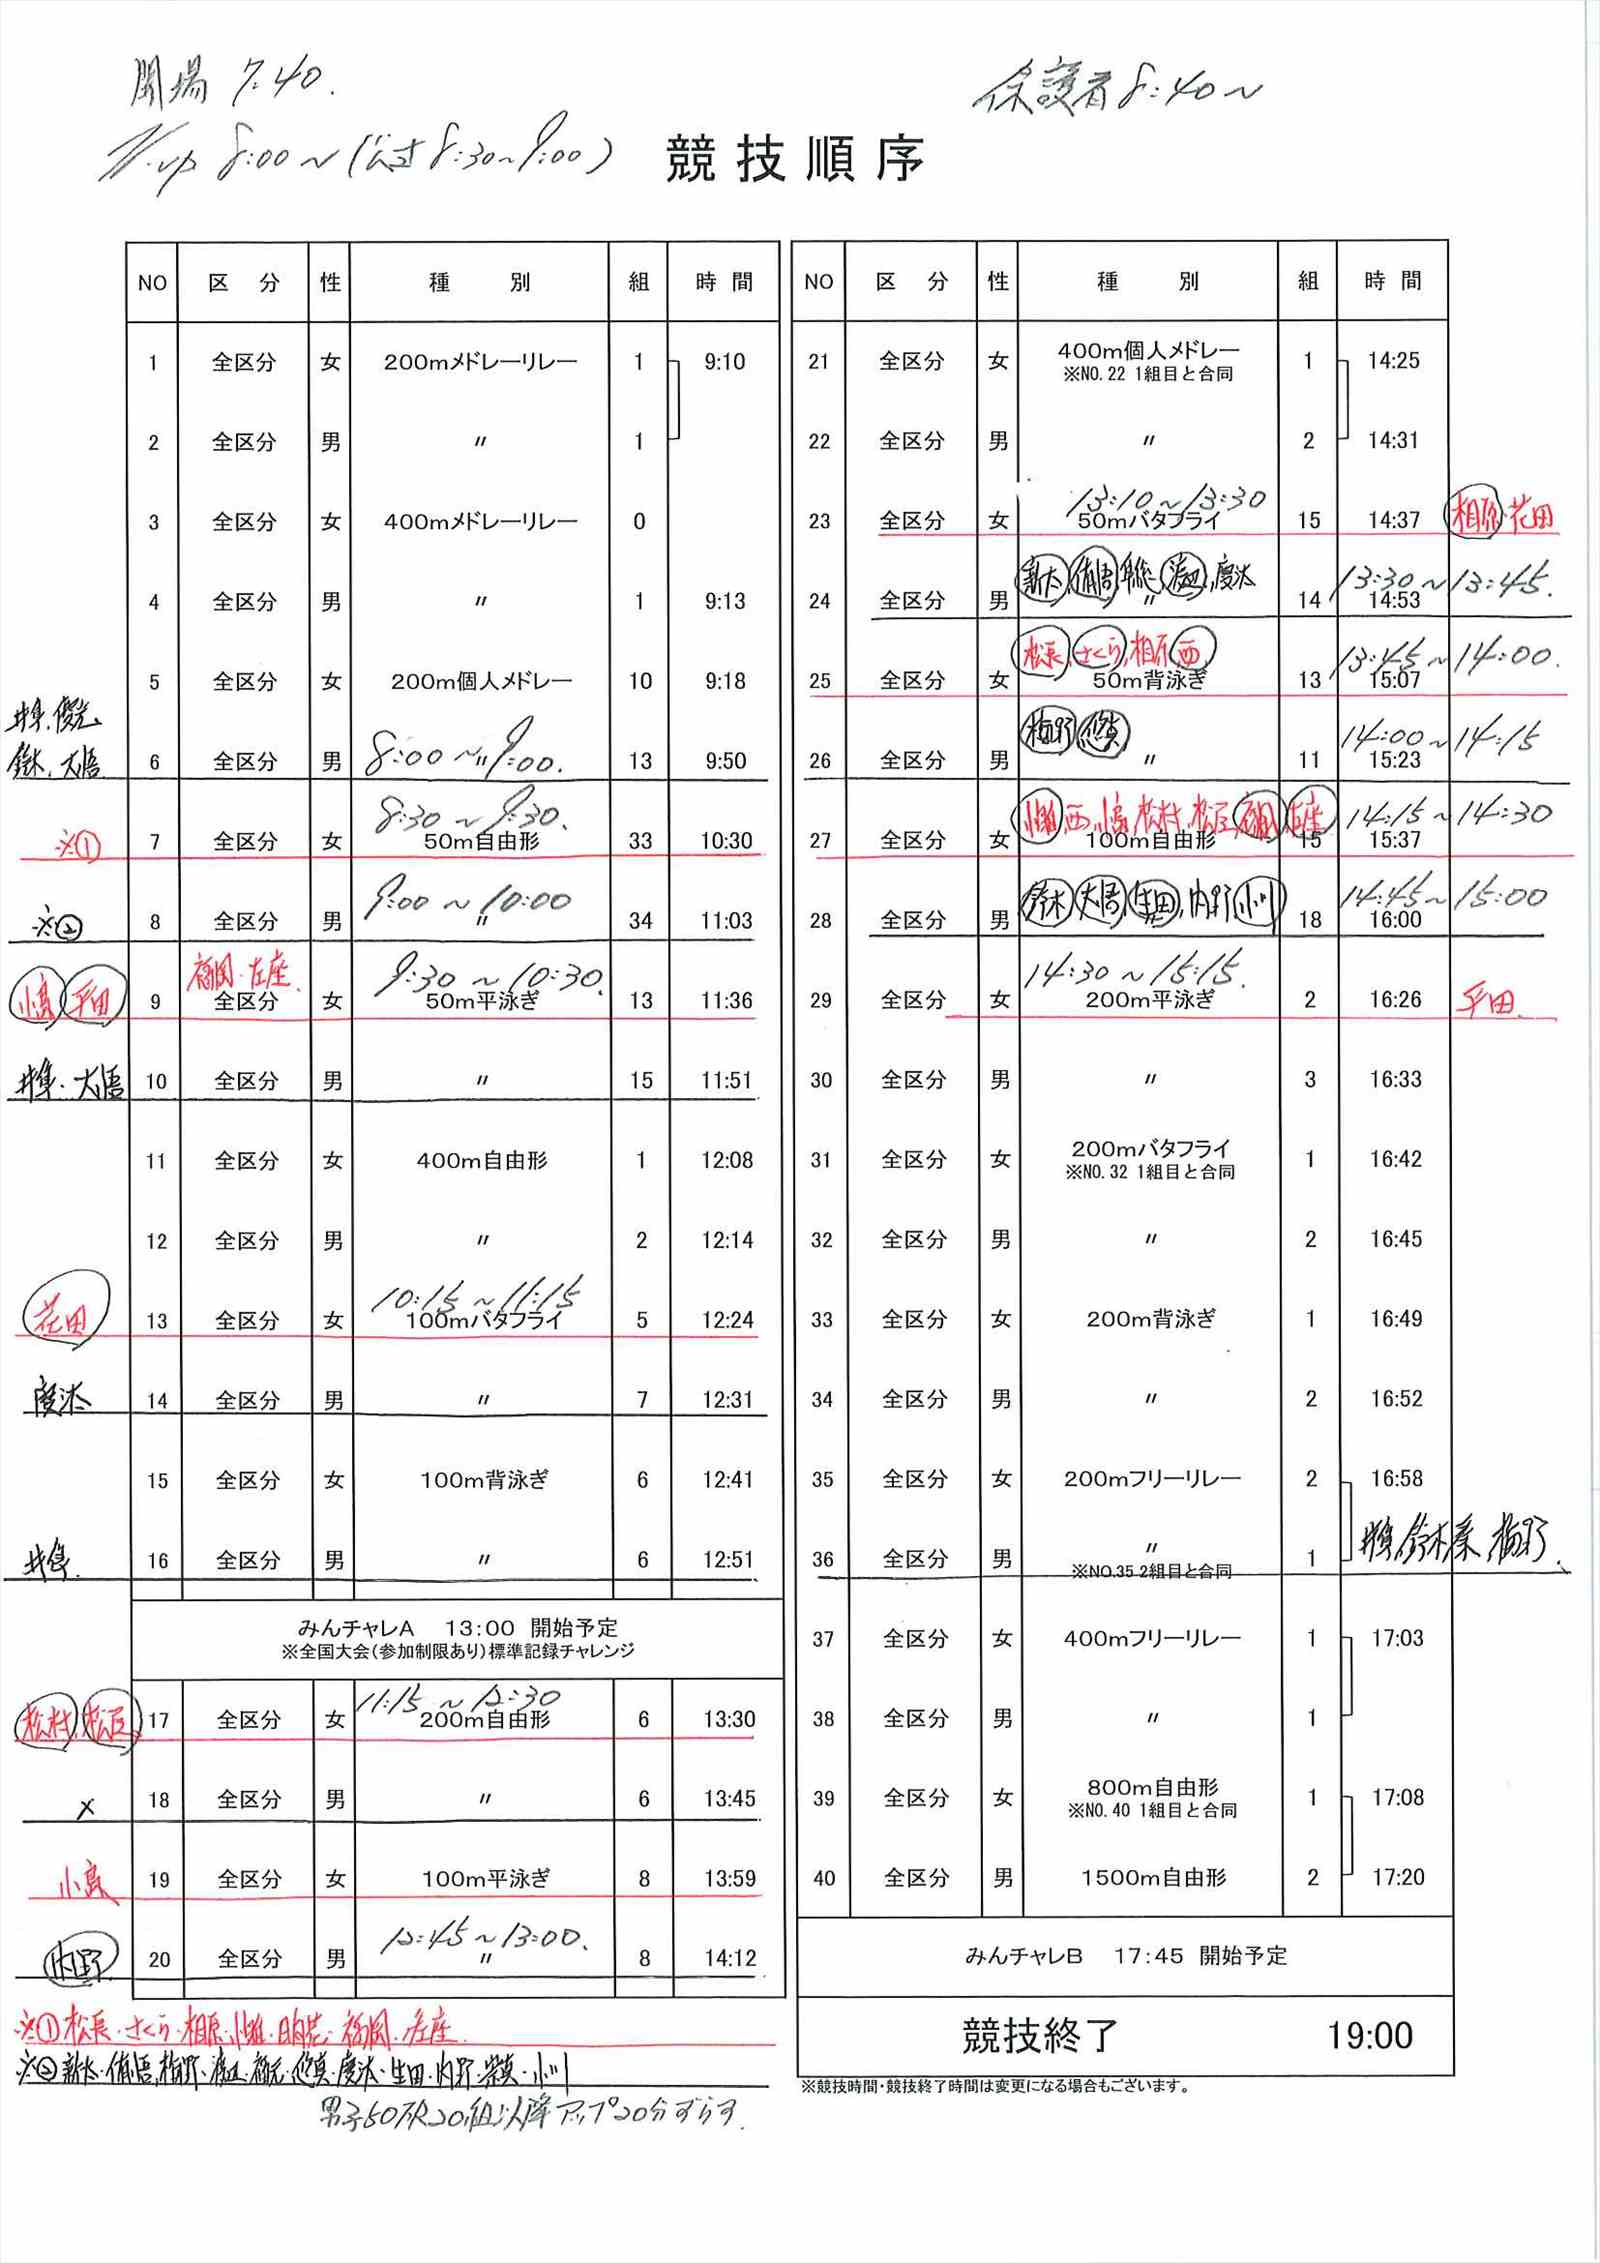 開場 7:40.
保護者 8:40～
W-up 8:00～(公式 8:30～9:00)
競技順序
NO 区分 性 種別 組 時間
1 全区分 女 200mメドレーリレー 1 9:10
2 全区分 男 〃 1
3 全区分 女 400mメドレーリレー 0
4 全区分 男 〃 1 9:13
5 全区分 女 200m個人メドレー 10 9:18
鈴木、大悟 6 全区分 男 〃 13 9:50
8:00～9:00.
8:30～9:30.
※① 7 全区分 女 50m自由形 33 10:30
9:00～10:00
※② 8 全区分 男 〃 34 11:03
福岡・左座 9:30～10:30.
小髙 平田 9 全区分 女 50m平泳ぎ 13 11:36
大悟 10 全区分 男 〃 15 11:51
11 全区分 女 400m自由形 1 12:08
12 全区分 男 〃 2 12:14
10:15～11:15
花田 13 全区分 女 100mバタフライ 5 12:24
慶汰 14 全区分 男 〃 7 12:31
15 全区分 女 100m背泳ぎ 6 12:41
16 全区分 男 〃 6 12:51
みんチャレA 13:00 開始予定
※全国大会(参加制限あり)標準記録チャレンジ
11:15～12:30
松村、松尾 17 全区分 女 200m自由形 6 13:30
× 18 全区分 男 〃 6 13:45
小髙 19 全区分 女 100m平泳ぎ 8 13:59
12:45～13:00.
内野 20 全区分 男 〃 8 14:12
※①松長・さくら・相原・福岡・左座
※②新太・侑悟・梅野・渡辺・悠真・慶汰・生田・内野・小川
男子50Fr20組以降アップ20分ずらす.
NO 区分 性 種別 組 時間
21 全区分 女 400m個人メドレー 1 14:25
※NO.22 1組目と合同
22 全区分 男 〃 2 14:31
13:10～13:30
23 全区分 女 50mバタフライ 15 14:37 相原・花田
新太、侑悟、渡辺、慶汰 13:30～13:45.
24 全区分 男 〃 14 14:53
松長、さくら、相原、西 13:45～14:00.
25 全区分 女 50m背泳ぎ 13 15:07
梅野 悠真 14:00～14:15
26 全区分 男 〃 11 15:23
西、小髙、松村、松尾、福岡、左座 14:15～14:30
27 全区分 女 100m自由形 15 15:37
鈴木、大悟、生田、内野、小川 14:45～15:00
28 全区分 男 〃 18 16:00
14:30～15:15.
29 全区分 女 200m平泳ぎ 2 16:26 平田
30 全区分 男 〃 3 16:33
31 全区分 女 200mバタフライ 1 16:42
※NO.32 1組目と合同
32 全区分 男 〃 2 16:45
33 全区分 女 200m背泳ぎ 1 16:49
34 全区分 男 〃 2 16:52
35 全区分 女 200mフリーリレー 2 16:58
36 全区分 男 〃 1 鈴木 梅野
※NO.35 2組目と合同
37 全区分 女 400mフリーリレー 1 17:03
38 全区分 男 〃 1
39 全区分 女 800m自由形 1 17:08
※NO.40 1組目と合同
40 全区分 男 1500m自由形 2 17:20
みんチャレB 17:45 開始予定
競技終了 19:00
※競技時間・競技終了時間は変更になる場合もございます。